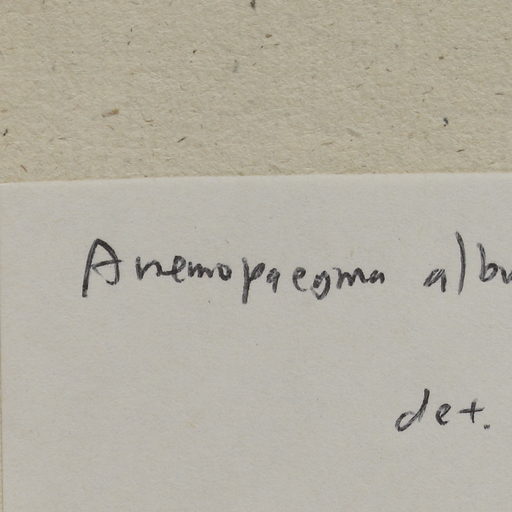 Anemopaegma albu
det.